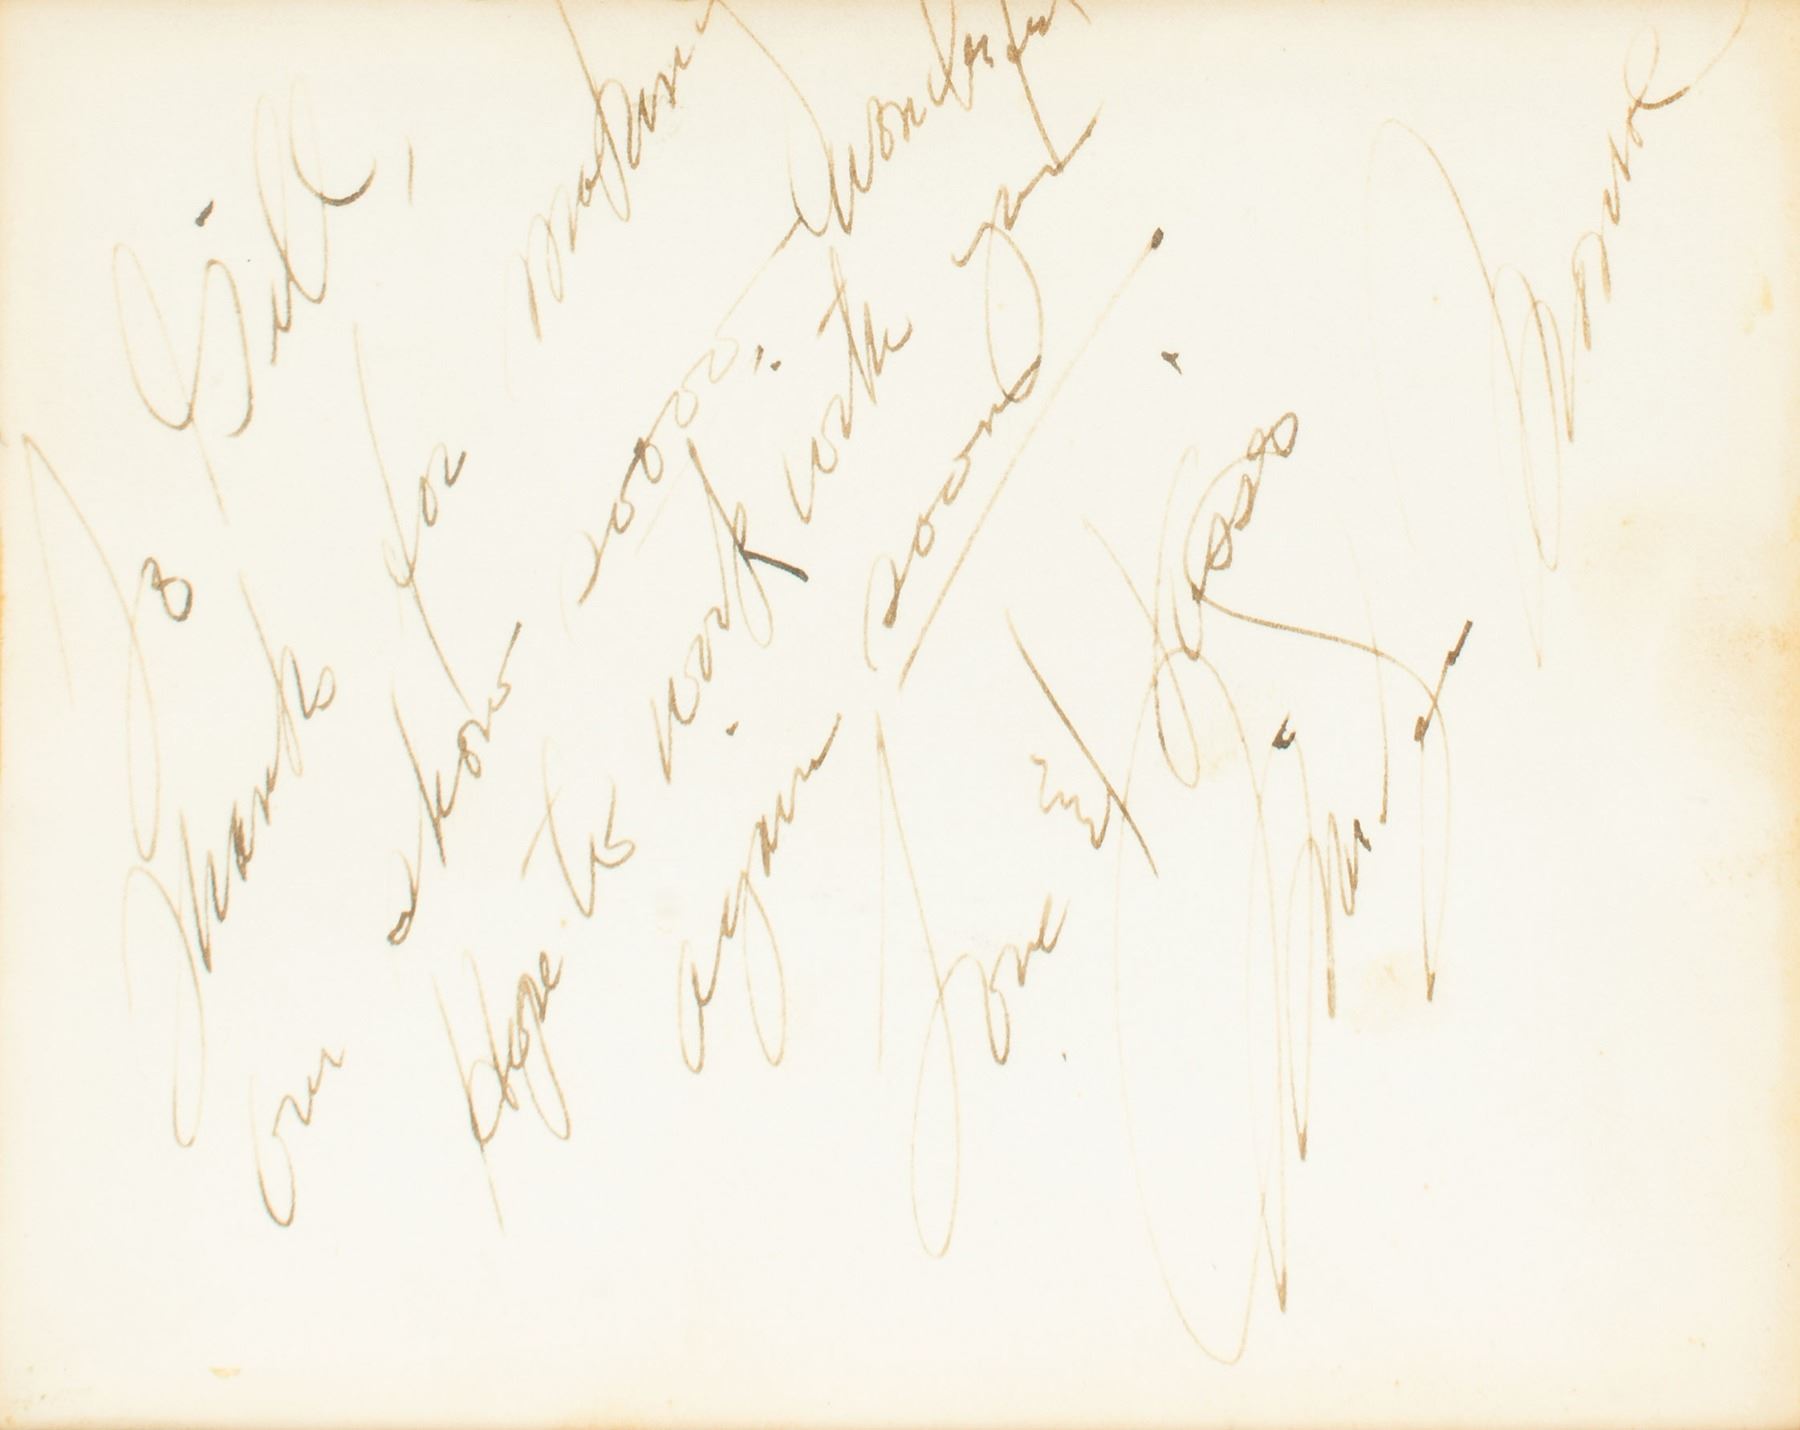 To Bill,
Thanks for making
our show soooo wonderful
Hope to work with you
again soon!
Love & Kisses
Monroe